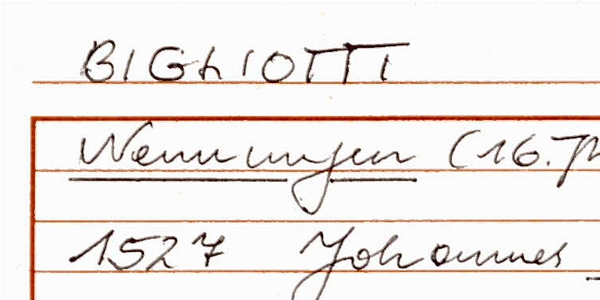 BIGLIOTTI
Nennungen (16. Jh
1527 Johannes